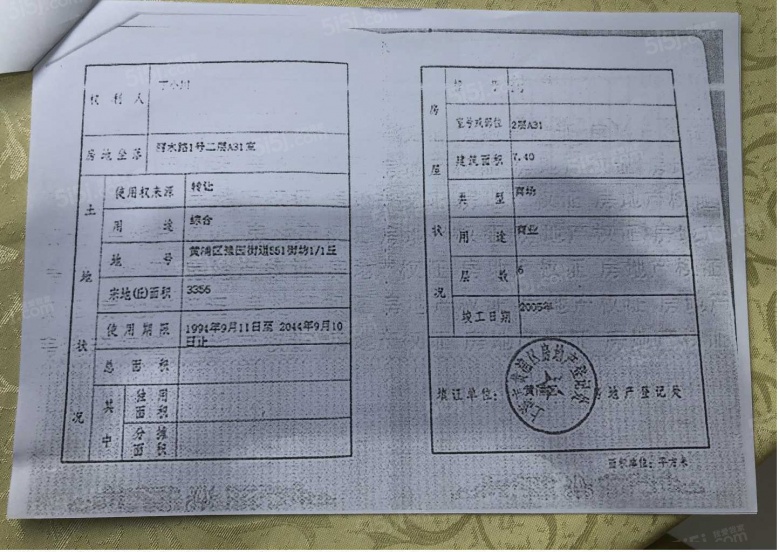 权利人
房地坐落 丽水路1号二层A31室
土地状况
使用权来源 转让
用途 综合
地号 黄浦区豫园街道551街坊1/1丘
宗地(丘)面积 3356
使用期限 1994年9月11日至 2044年9月10日止
总面积
其中
独用面积
分摊面积
房屋状况
幢号
室号或部位 2层A31
建筑面积 7.40
类型 商场
用途 商业
层数 6
竣工日期 2005年
填证单位: 黄浦区房地产登记处
上海市黄浦区房地产登记处
面积单位: 平方米